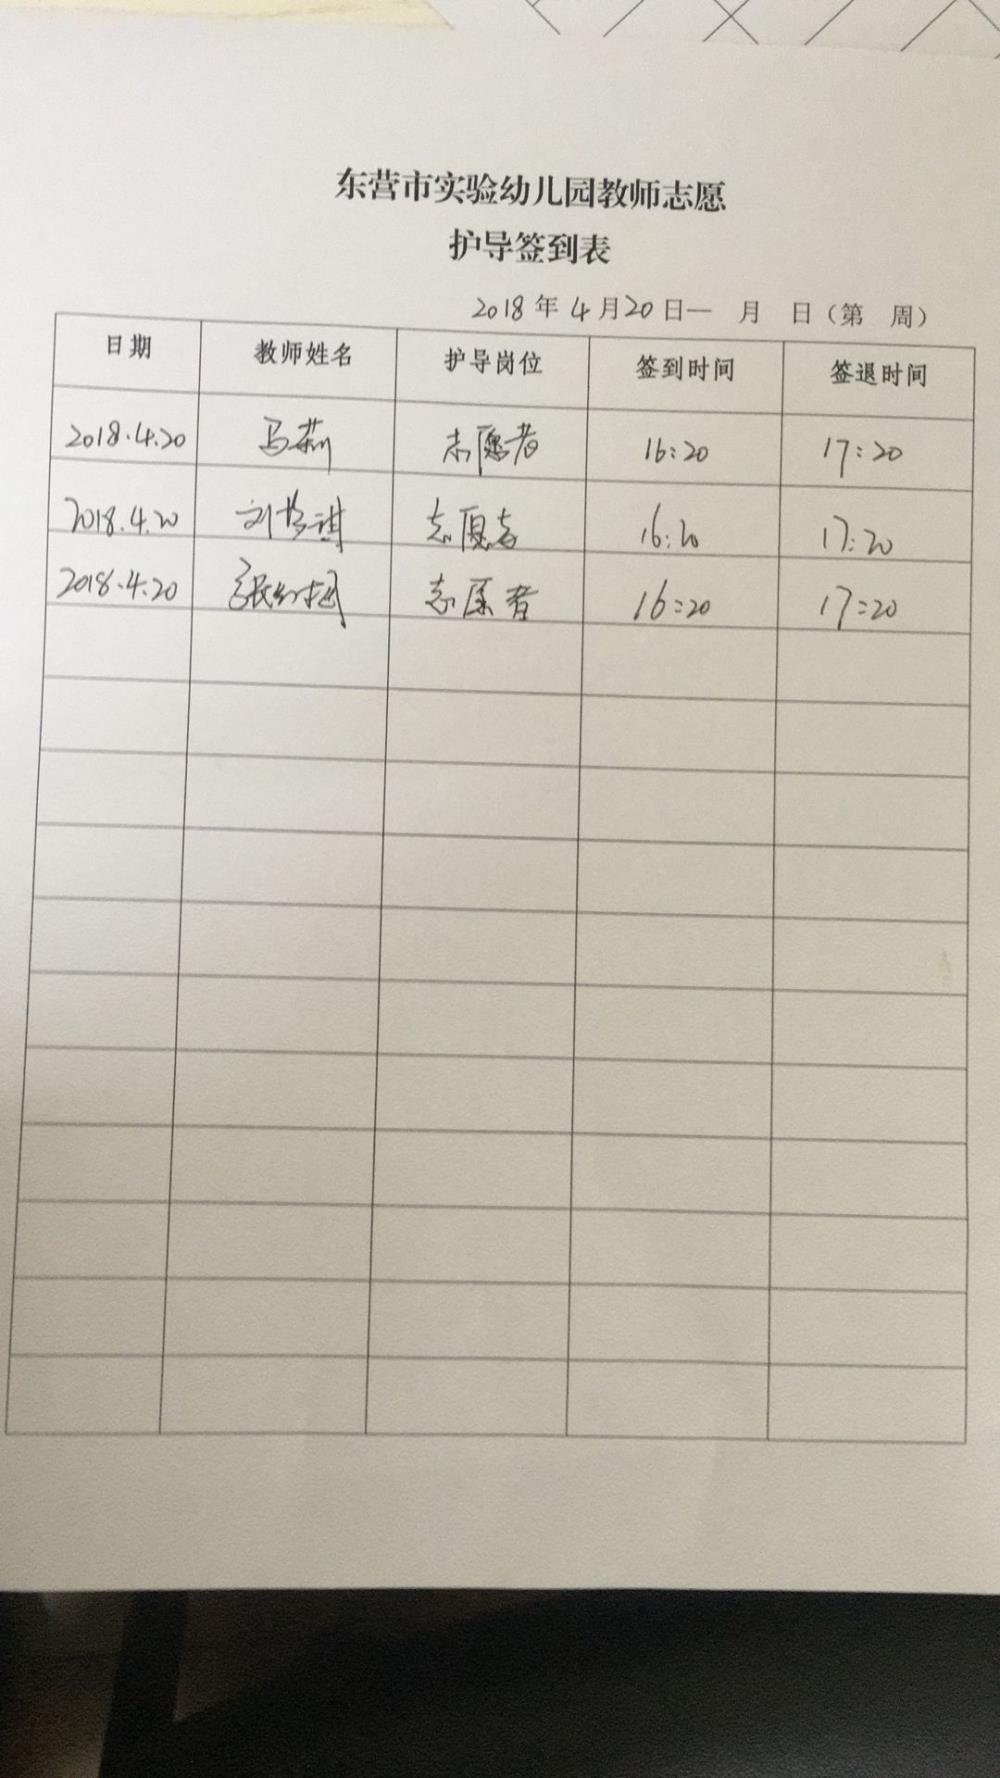 东营市实验幼儿园教师志愿
护导签到表
2018年4月20日— 月 日（第 周）
日期 教师姓名 护导岗位 签到时间 签退时间
2018.4.20 马莉 志愿者 16:20 17:20
2018.4.20 刘梦琪 志愿者 16:20 17:20
2018.4.20 张 志愿者 16:20 17:20